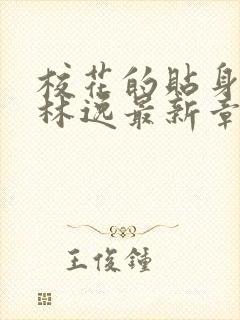 校花的貼身
林逸最新章
王俊鍾